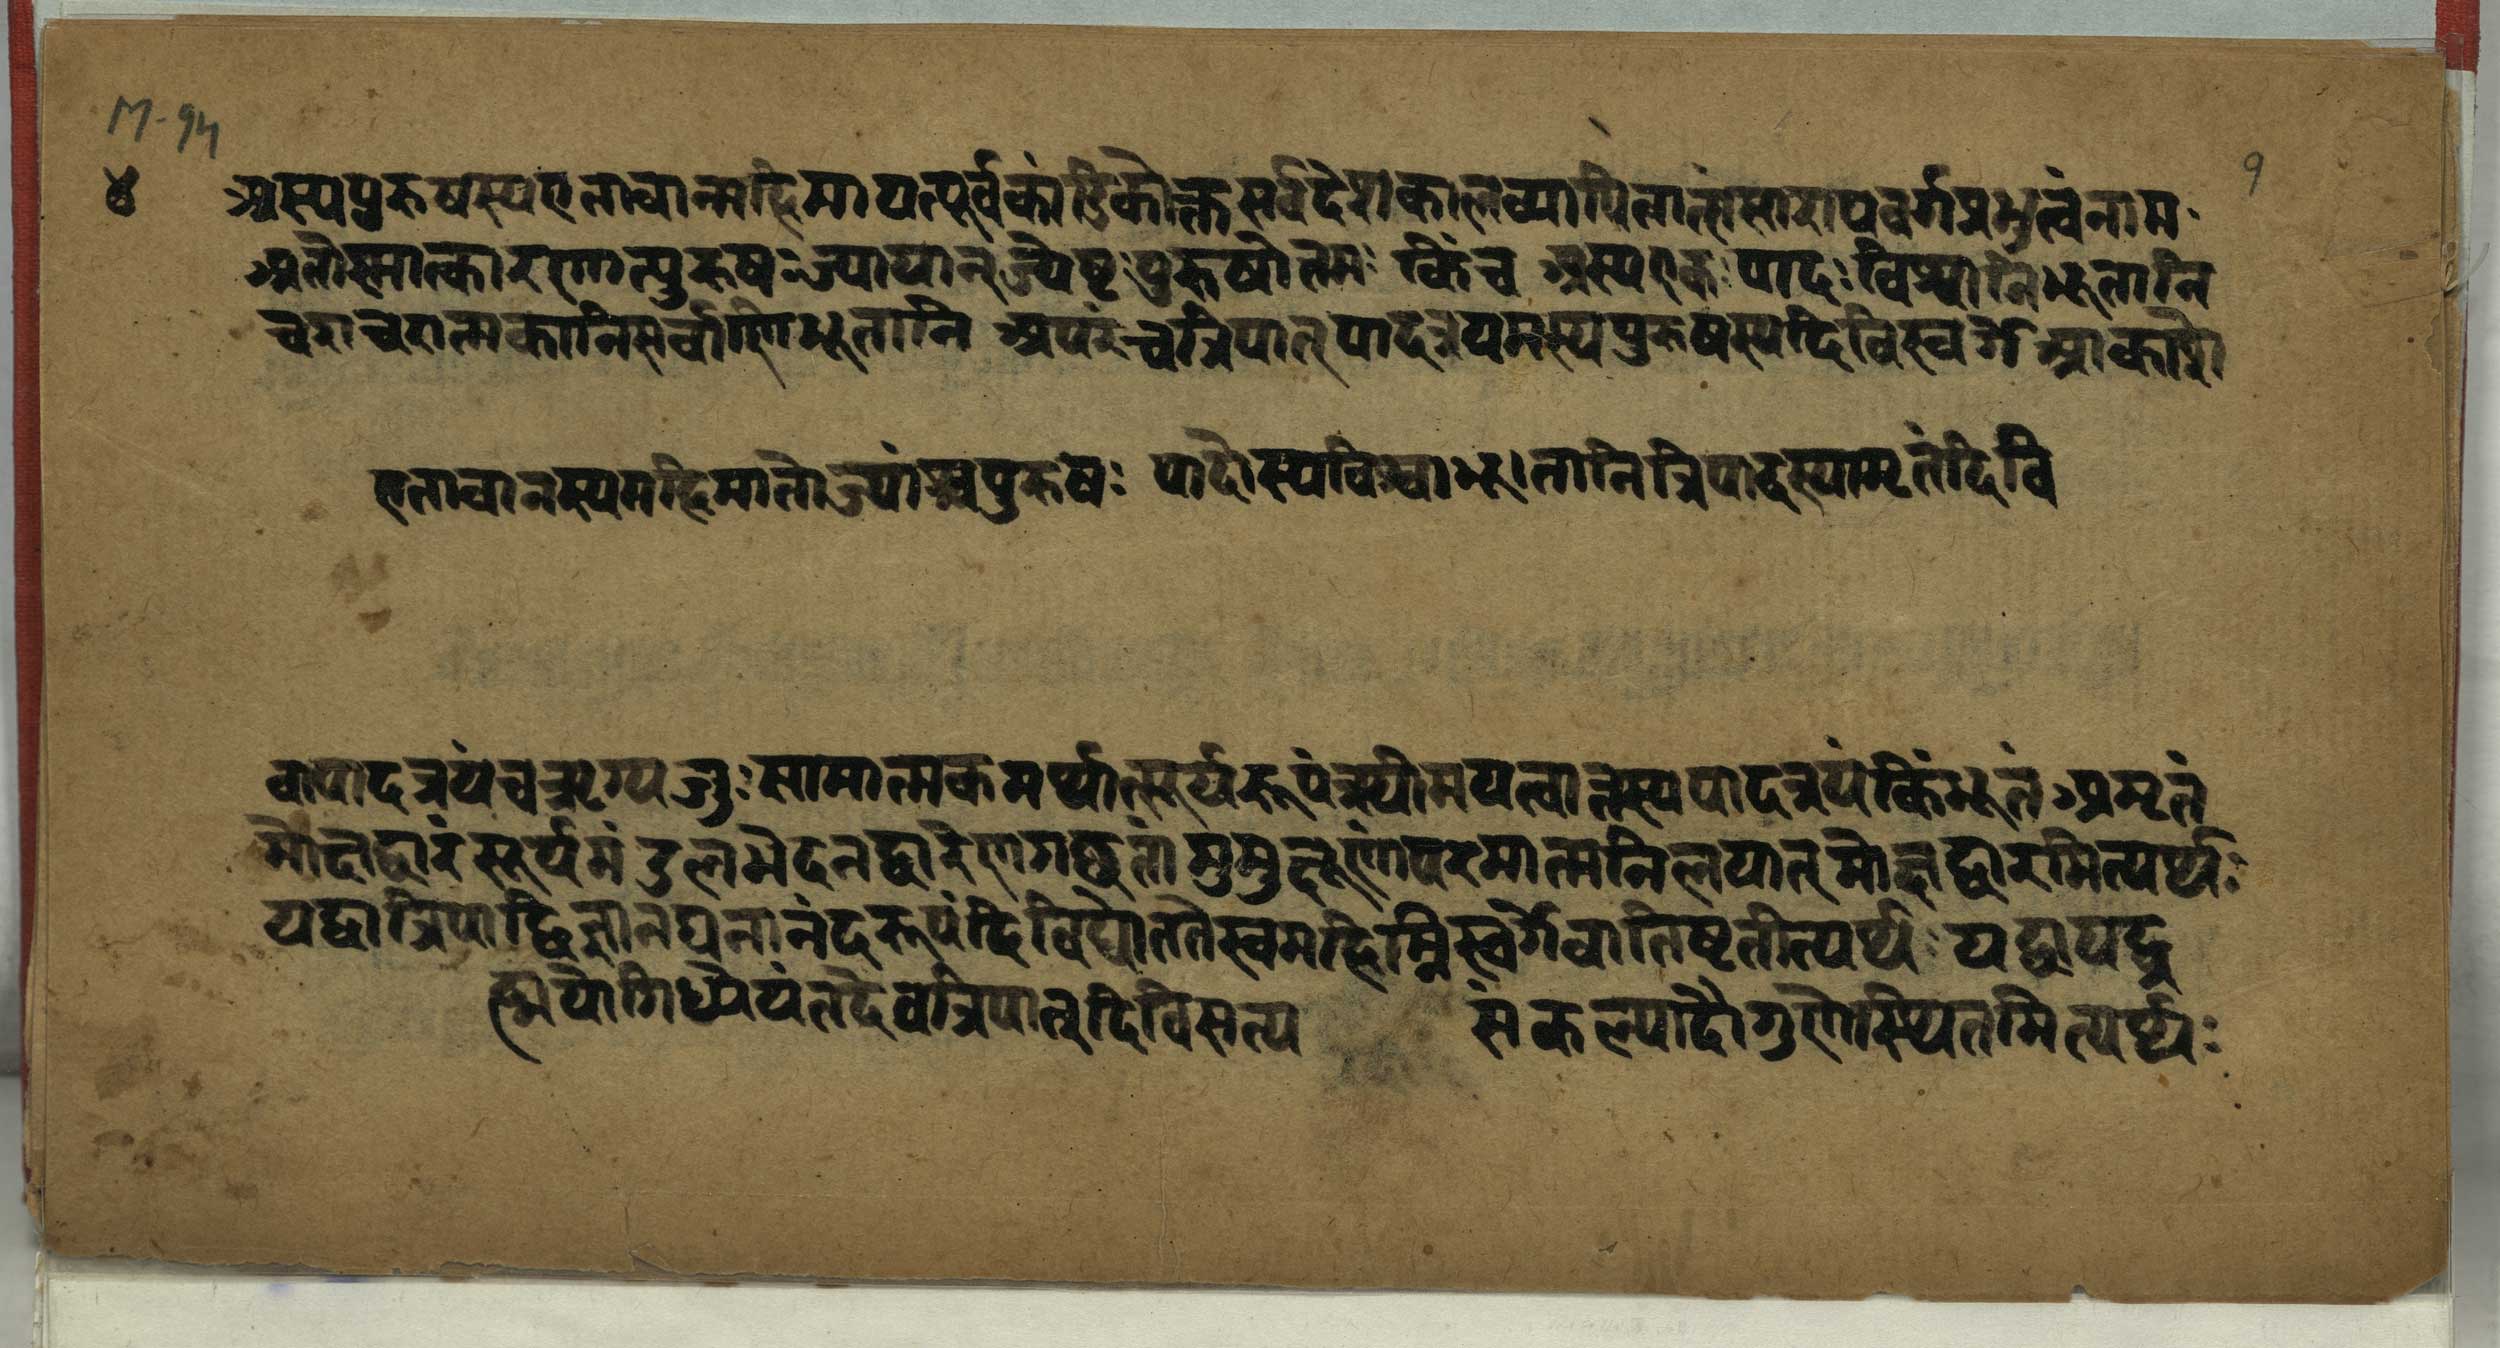 M-94
४ अस्यपुरुषस्यएतावान्महिमा यत्पूर्वकांडिकोक्तसर्वदेशकालव्यापितात्संसारापवर्गप्रभुत्वंनाम
अतोस्मात्कारणात्पुरुषःज्यायान्ज्येष्टःपुरुषोत्तमः किंच अस्यएकः पादः विश्वानिभूतानि
चराचरात्मकानिसर्वाणिभूतानि अपरंचत्रिपात्पादत्रयमस्यपुरुषस्यदिविस्वर्गे आकाशे
एतावानस्यमहिमातोज्यांश्चपुरुषः पादोस्यविश्वाभूतानित्रिपादस्यामृतंदिवि
वापादत्रयंचऋग्यजुःसामात्मकमर्थात्सूर्यरूपंत्रयीमयत्वात्तस्यपादत्रयंकिंभूतं अमृतं
मोक्षद्वारंसूर्यमंडलभेदनद्वारेणगच्छतांमुमुक्षूणांपरमात्मनिलयात्मोक्षद्वारमित्यर्थः
यद्वात्रिपाद्विज्ञानघनानंदरूपंदिविद्योततेस्वमहिम्निस्वर्गेवातिष्टतीत्यर्थः यद्वायद्ब्र
ह्मयोगिध्येयंतदेवत्रिपात्दिविसत्य संकल्पादौगुणेस्थितमित्यर्थः